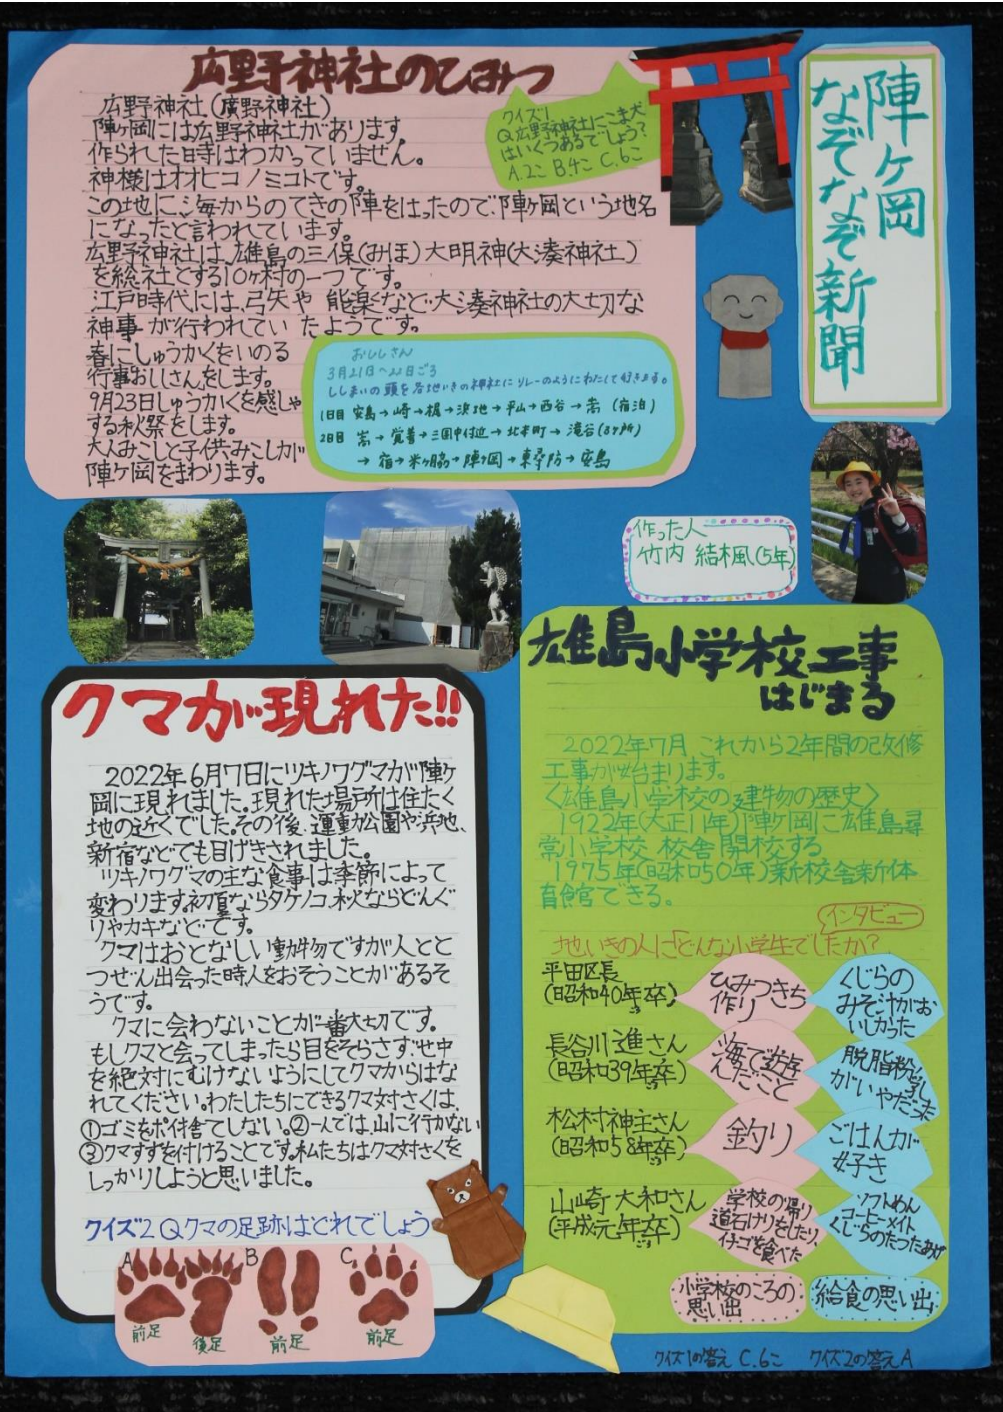 陣ヶ岡
なぞなぞ新聞
広野神社のひみつ
広野神社(廣野神社)
陣ヶ岡には広野神社があります。
作られた日時はわかっていません。
神様はオオヒコノミコトです。
この地に海からのてきの陣をはったので、陣ヶ岡という地名
になったと言われています。
広野神社は、雄島の三保(みほ)大明神(大湊神社)
を総社とする10ヶ村の一つです。
江戸時代には、弓矢や能楽など大湊神社の大切な
神事が行われていたようです。
春にしゅうかくをいのる
行事おししさんをします。
9月23日しゅうかくを感しゃ
する秋祭をします。
大人みこしと子供みこしが
陣ヶ岡をまわります。
クイズ1
Q広野神社にこま犬
はいくつあるでしょう?
A.2こ B.4こ C.6こ
おししさん
3月21日~22日ごろ
ししまいの頭を各地いきの神社にリレーのようにわたして行きまる。
1日目 安島→崎→梶→浜地→平山→西谷→嵩(宿泊)
2日目 嵩→覚善→三国中付近→北本町→滝谷(3ヶ所)
→宿→米ヶ脇→陣ヶ岡→東尋防→安島
作った人
竹内 結楓(5年)
クマが現れた!!
2022年6月7日にツキノワグマが陣ヶ
岡に現れました。現れた場所は住たく
地の近くでした。その後、運動公園や浜地、
新宿などでも目げきされました。
ツキノワグマの主な食事は季節によって
変わります。初夏ならタケノコ、秋ならどんぐ
りやカキなどです。
クマはおとなしい動物ですが人とと
つぜん出会った時人をおそうことがあるそ
うです。
クマに会わないことが一番大切です。
もしクマと会ってしまったら目をそらさず、せ中
を絶対にむけないようにしてクマからはな
れてください。わたしたちにできるクマ対さくは、
①ゴミをポイ捨てしない。②一人では、山に行かない
③クマすずを付けることです。私たちはクマ対さくを
しっかりしようと思いました。
クイズ2 Qクマの足跡はどれでしょう
A B C
前足 後足 前足 前足
雄島小学校工事
はじまる
2022年7月 これから2年間の改修
工事が始まります。
〈雄島小学校の建物の歴史〉
1922年(大正11年)陣ヶ岡に雄島尋
常小学校 校舎開校する
1975年(昭和50年)新校舎新体
育館できる。
インタビュー
地いきの人に「どんな小学生でしたか?
平田区長
(昭和40年卒)
ひみつきち
作り
くじらの
みそ汁がお
いしかった
長谷川進さん
(昭和39年卒)
海で遊
んだこと
脱脂粉乳
がいやだった
松村神主さん
(昭和58年卒)
釣り
ごはんが
好き
山崎 大和さん
(平成元年卒)
学校の帰り
道石けりをしたり、
イチゴを食べた
ソフトめん
コーヒーメイト
くじらのたつたあげ
小学校のころの
思い出
給食の思い出
クイズ1の答え C.6こ クイズ2の答え A